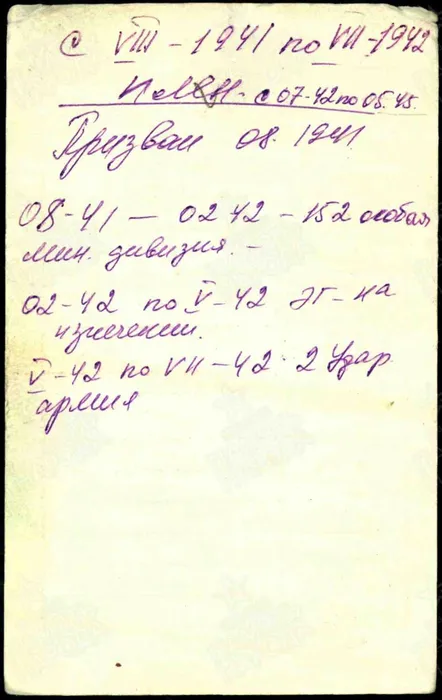 с VIII - 1941 по VII - 1942
Плен - с 07-42 по 05.45.
Призван 08. 1941
08-41 — 02 42 - 152 особая
мин. дивизия. -
02-42 по V-42 ЭГ-на
излечении.
V-42 по VII-42 2 Удар
армия